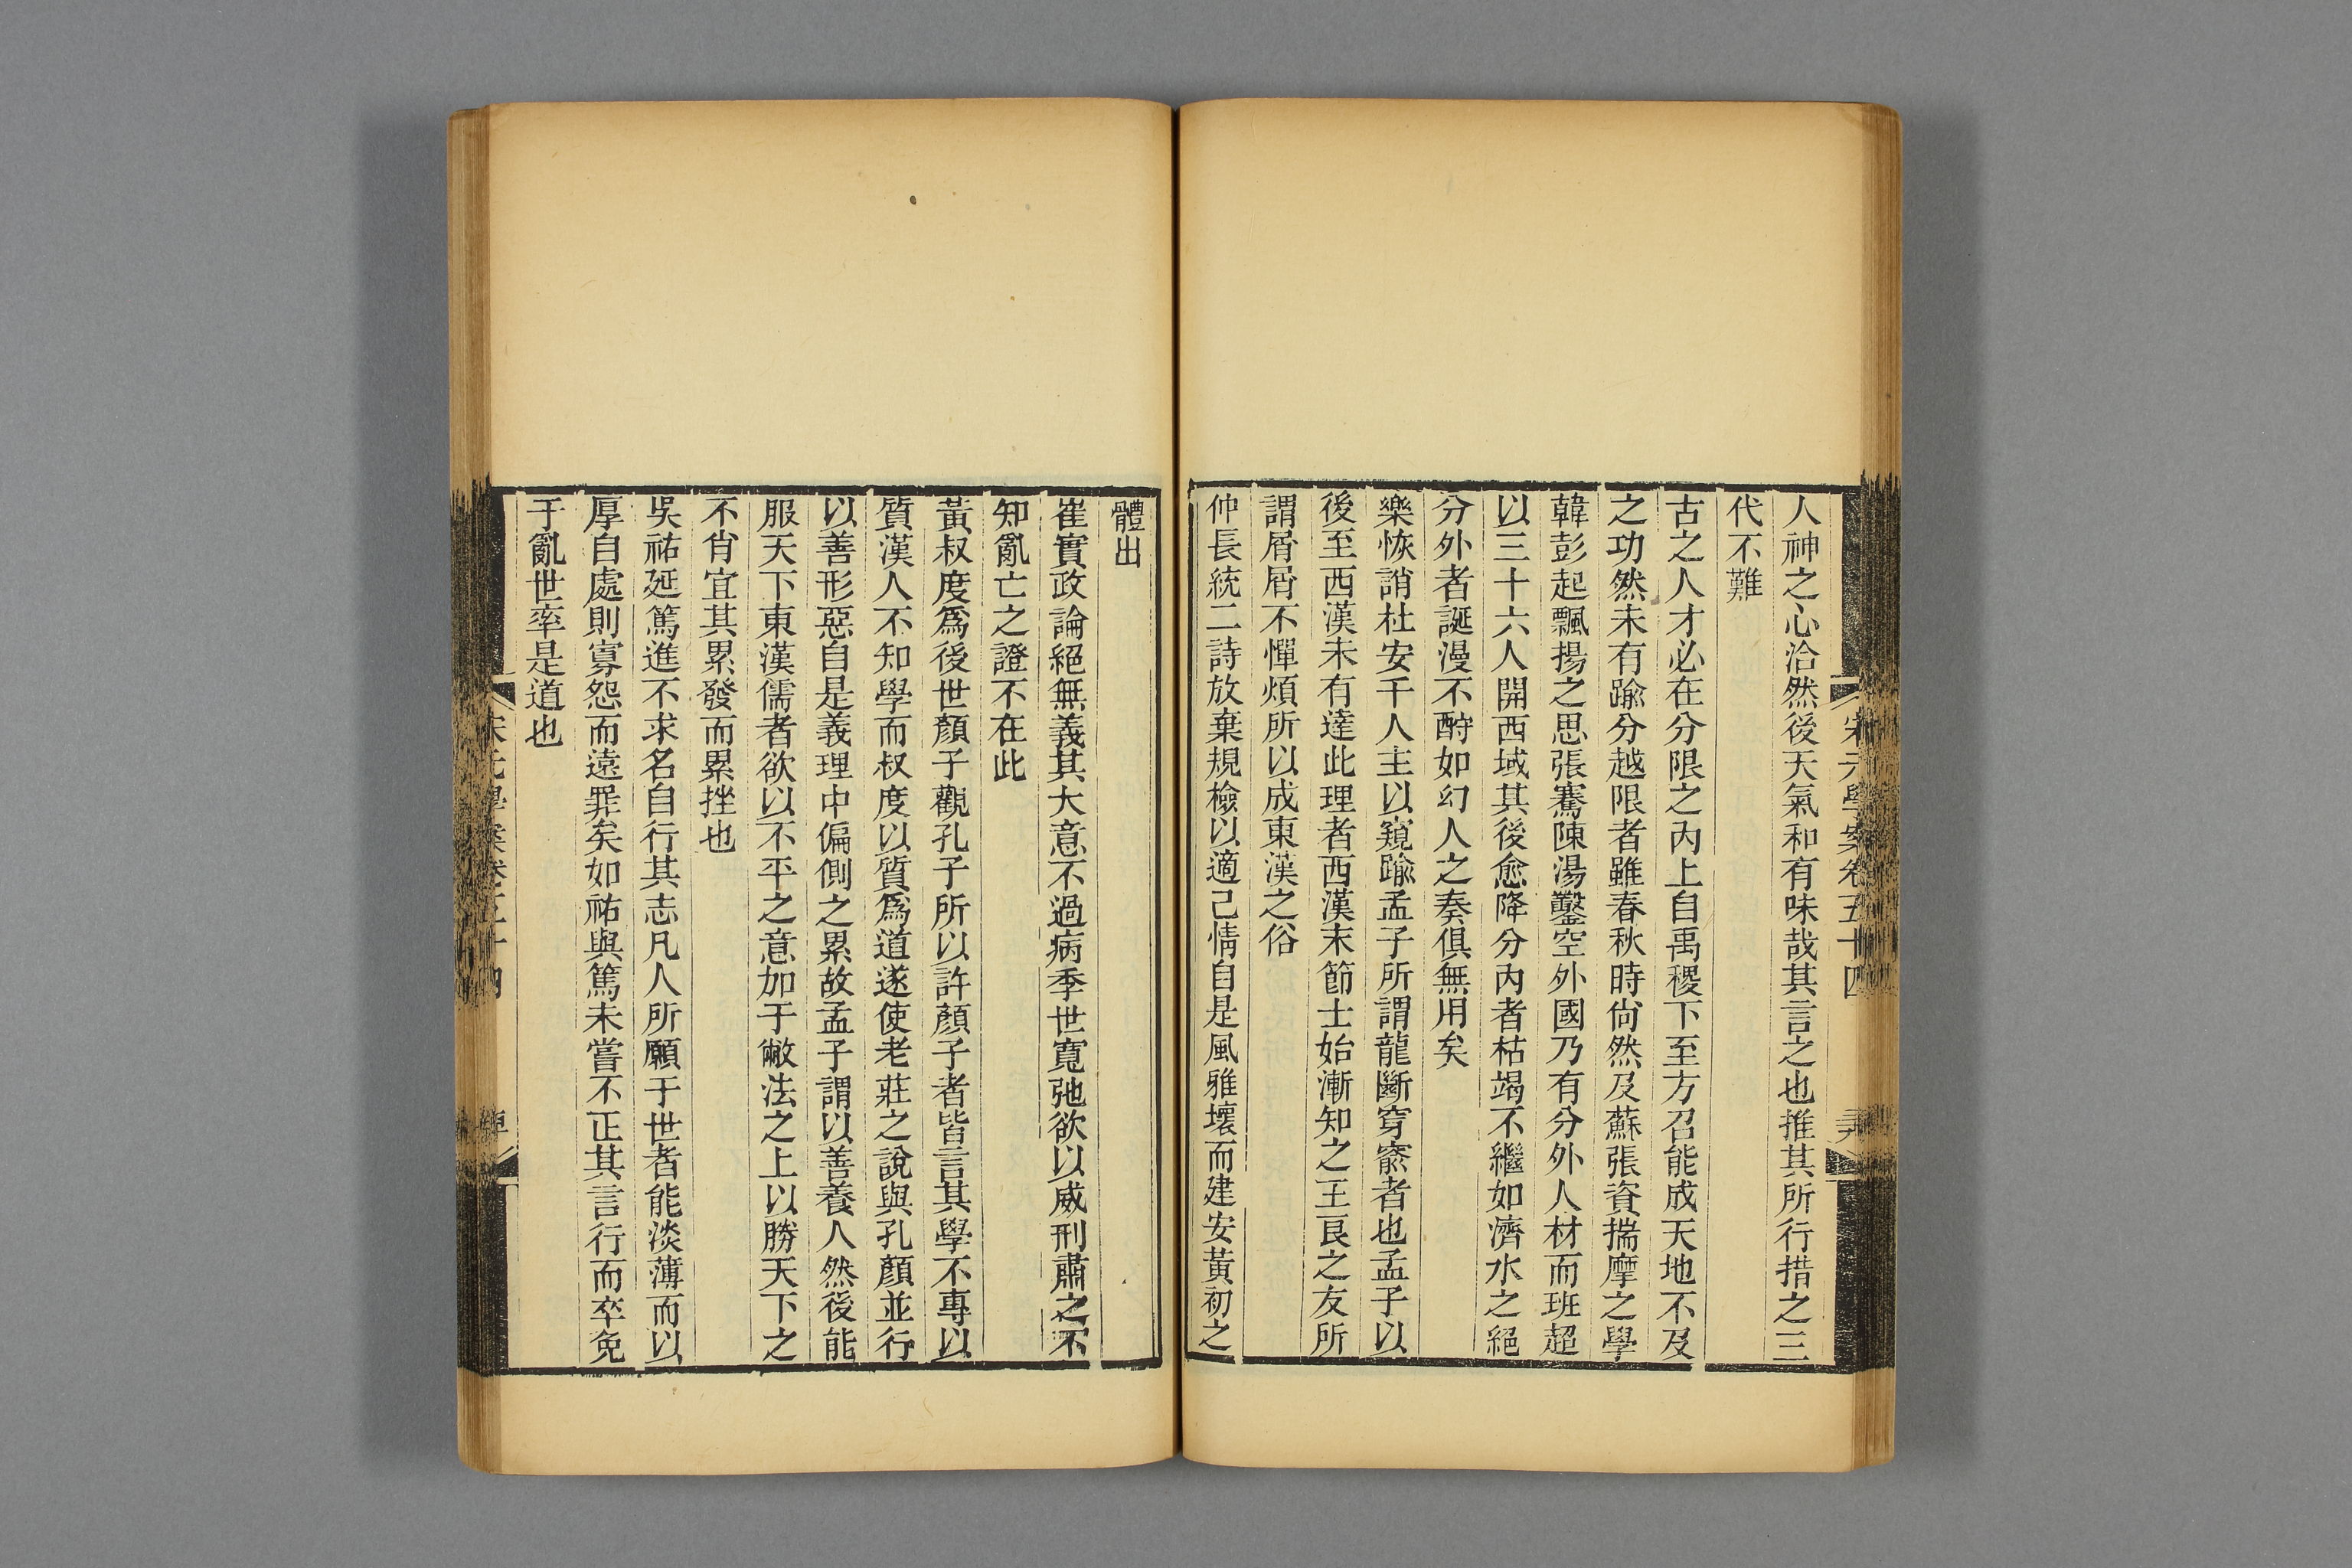 宋元學案卷五十四
人神之心洽然後天氣和有味哉其言之也推其所行措之三
代不難
古之人才必在分限之內上自禹稷下至方召能成天地不及
之功然未有踰分越限者雖春秋時尙然及蘇張資揣摩之學
韓彭起飄揚之思張騫陳湯鑿空外國乃有分外人材而班超
以三十六人開西域其後愈降分內者枯竭不繼如濟水之絕
分外者誕漫不酹如幻人之奏俱無用矣
樂恢誚杜安千人主以窺踰孟子所謂龍斷穿窬者也孟子以
後至西漢未有達此理者西漢末節士始漸知之王良之友所
謂屑屑不憚煩所以成東漢之俗
仲長統二詩放棄規檢以適己情自是風雅壞而建安黃初之
體出
崔實政論絕無義其大意不過病季世寬弛欲以威刑肅之不
知亂亡之證不在此
黃叔度爲後世顏子觀孔子所以許顏子者皆言其學不專以
質漢人不知學而叔度以質爲道遂使老莊之說與孔顏並行
以善形惡自是義理中偏側之累故孟子謂以善養人然後能
服天下東漢儒者欲以不平之意加于敝法之上以勝天下之
不肖宜其累發而累挫也
吳祐延篤進不求名自行其志凡人所願于世者能淡薄而以
厚自處則寡怨而遠罪矣如祐與篤未嘗不正其言行而卒免
于亂世率是道也
宋元學案卷五十四